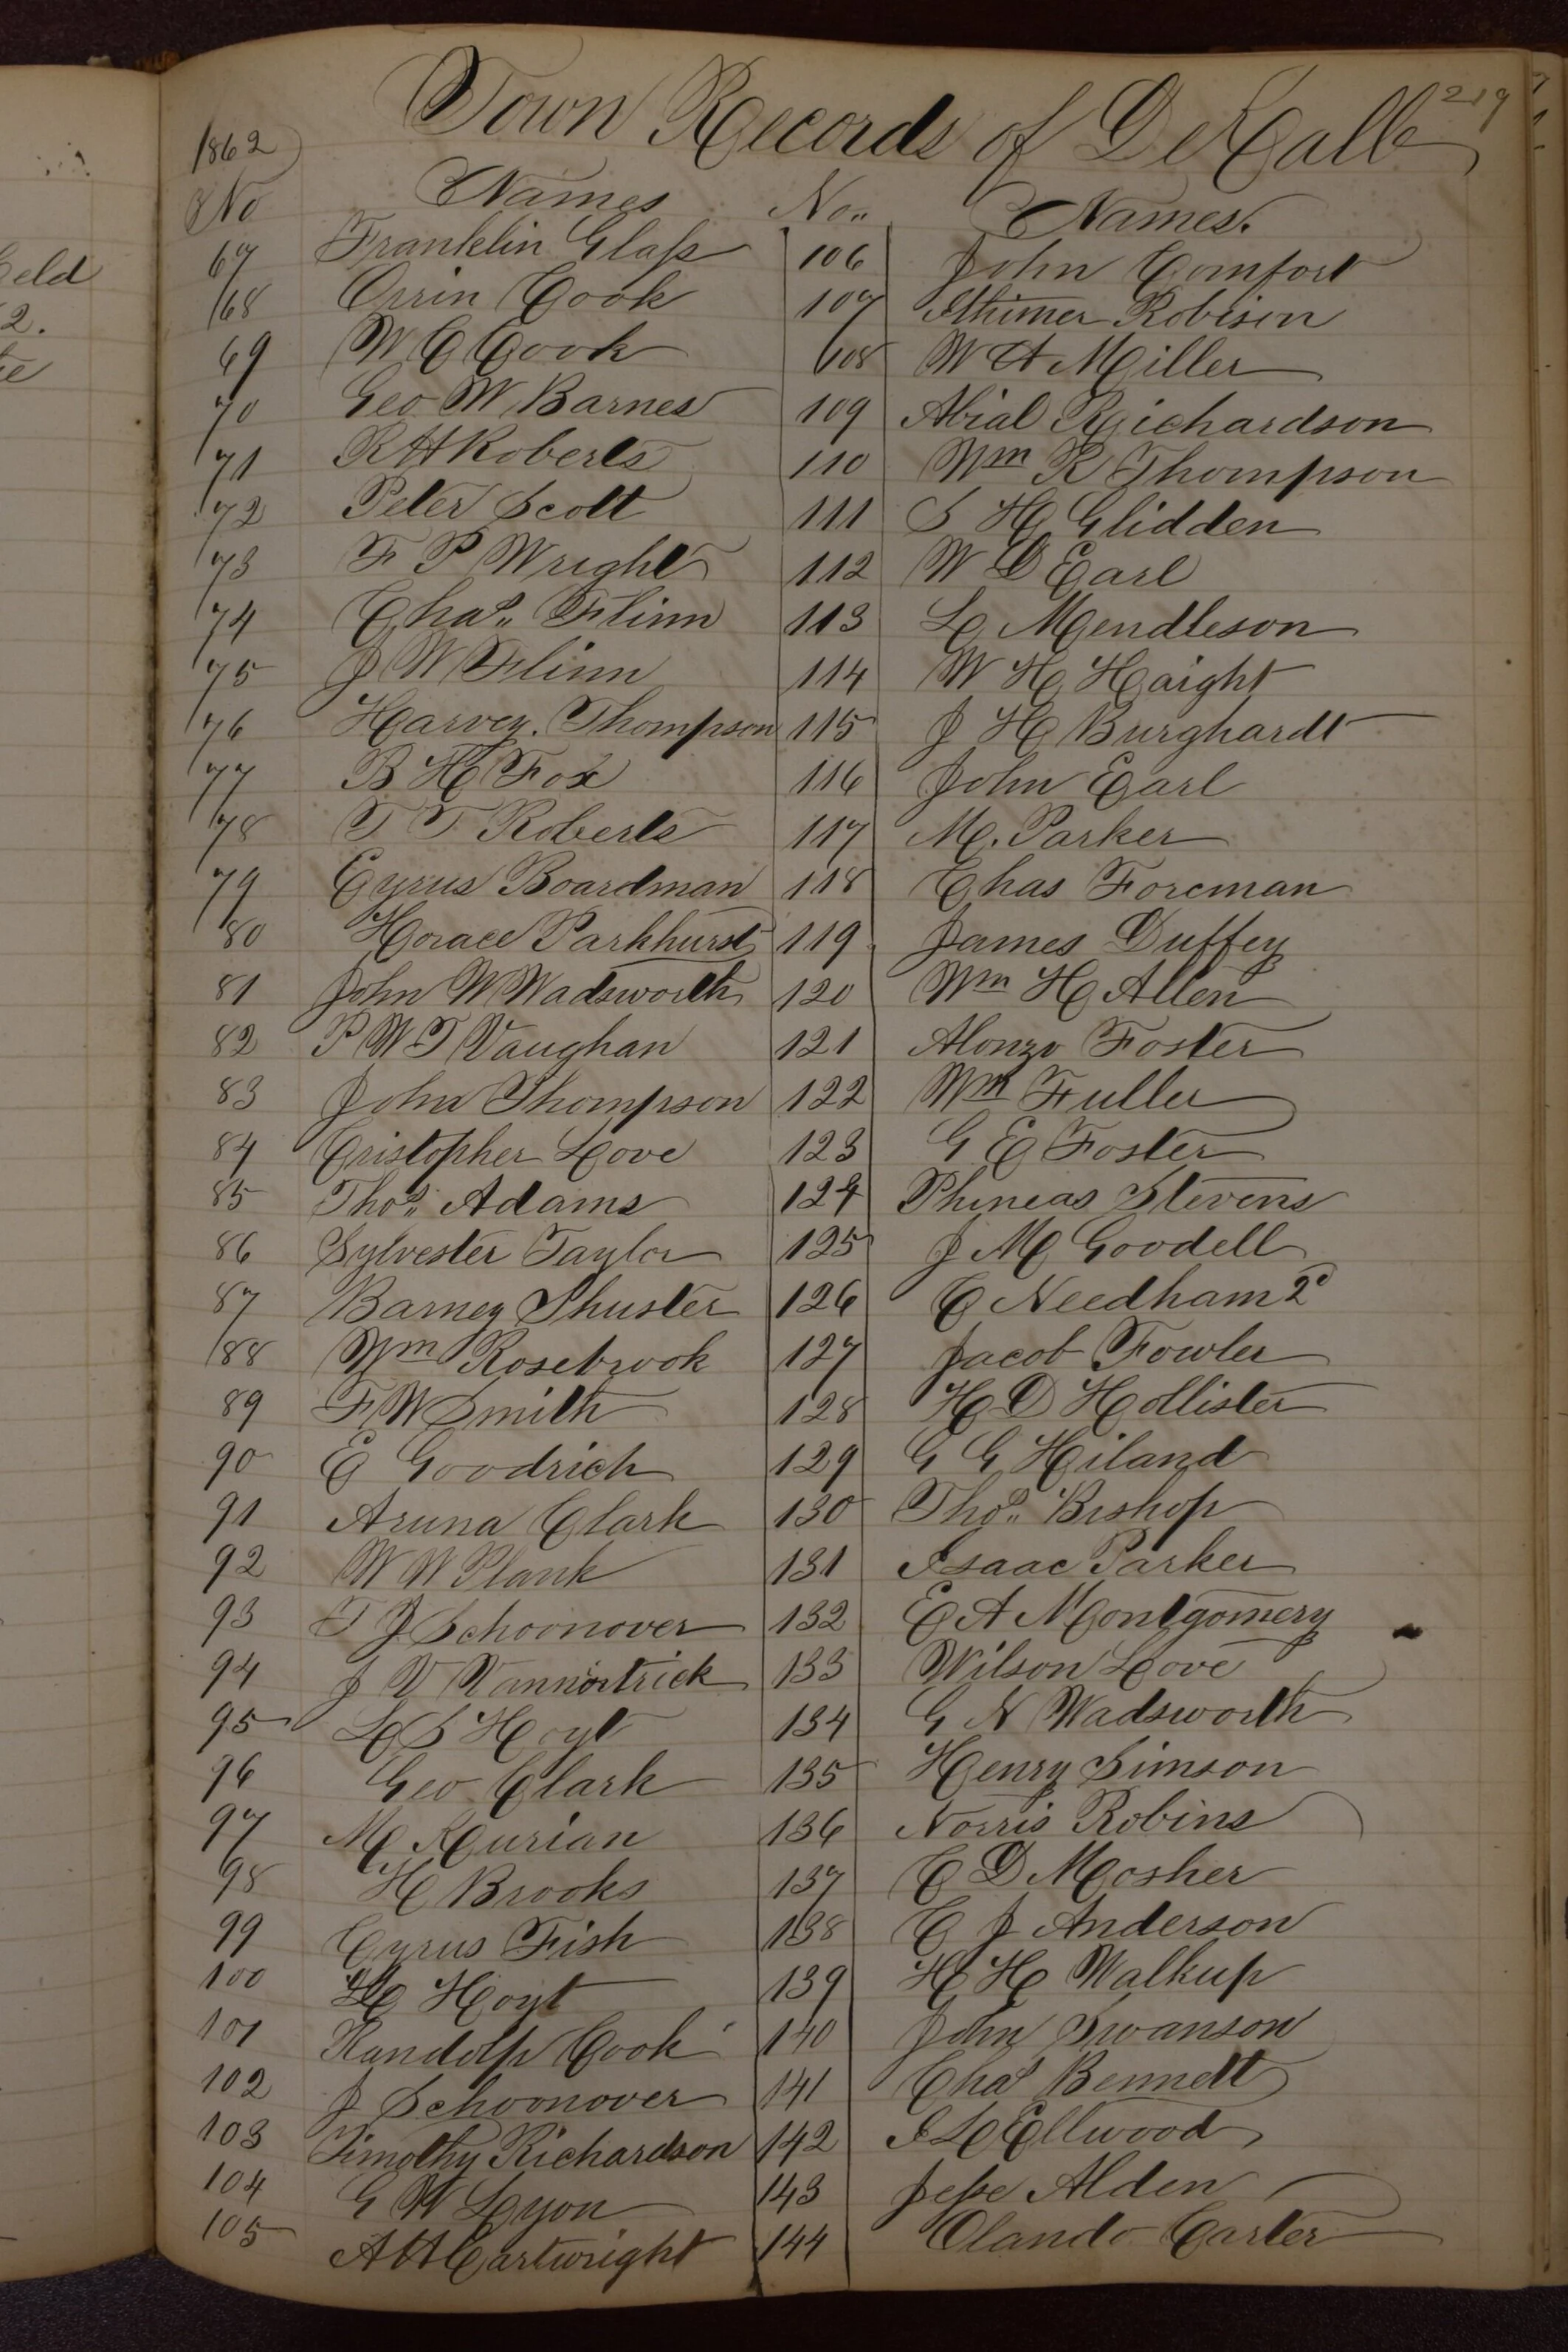 219
Town Records of DeKalb
1862
No Names No.. Names.
67 Franklin Glass 106 John Comfort
68 Orrin Cook 107 Robison
69 W C Cook 108 W A Miller
70 Geo W Barnes 109 Abial Richardson
71 R H Roberts 110 Wm R Thompson
72 Peter Scott 111 S H Glidden
73 F P Wright 112 W D Earl
74 Chas.. Flinn 113 L Mendleson
75 J W Flinn 114 W H Haight
76 Harvey. Thompson 115 J H Burghardt
77 B H Fox 116 John Earl
78 T T Roberts 117 M. Parker
79 Cyrus Boardman 118 Chas Foreman
80 Horace Parkhurst 119 James Duffey
81 John W Wadsworth 120 Wm H Allen
82 P W T Vaughan 121 Alonzo Foster
83 John Thompson 122 Wm Fuller
84 Cristopher Love 123 G E Foster
85 Thos.. Adams 124 Phineas Stevens
86 Sylvester Taylor 125 J M Goodell
87 Barney Shuster 126 C Needham 2d
88 Wm Rosebrook 127 Jacob Fowler
89 F W Smith 128 H D Hollister
90 E Goodrich 129 G G Hiland
91 Aruna Clark 130 Thos.. Bishop
92 W W Plank 131 Isaac Parker
93 T J Schoonover 132 E A Montgomery
94 J V 133 Wilson Love
95 L S Hoyt 134 G N Wadsworth
96 Geo Clark 135 Henry Simson
97 M Kurian 136 Norris Robins
98 H Brooks 137 C D Mosher
99 Cyrus Fish 138 C J Anderson
100 Hoyt 139 H H Walkup
101 Randolp Cook 140 John Swanson
102 J Schoonover 141 Chas Bennett
103 Timothy Richardson 142 I L Ellwood
104 G W Lyon 143 Jesse Alden
105 A H Cartwright 144 Olando Carter